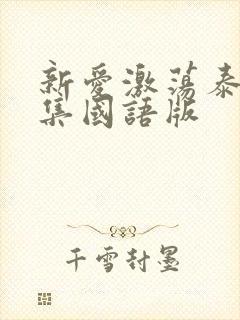 新爱激荡泰
集國語版
千雪封墨